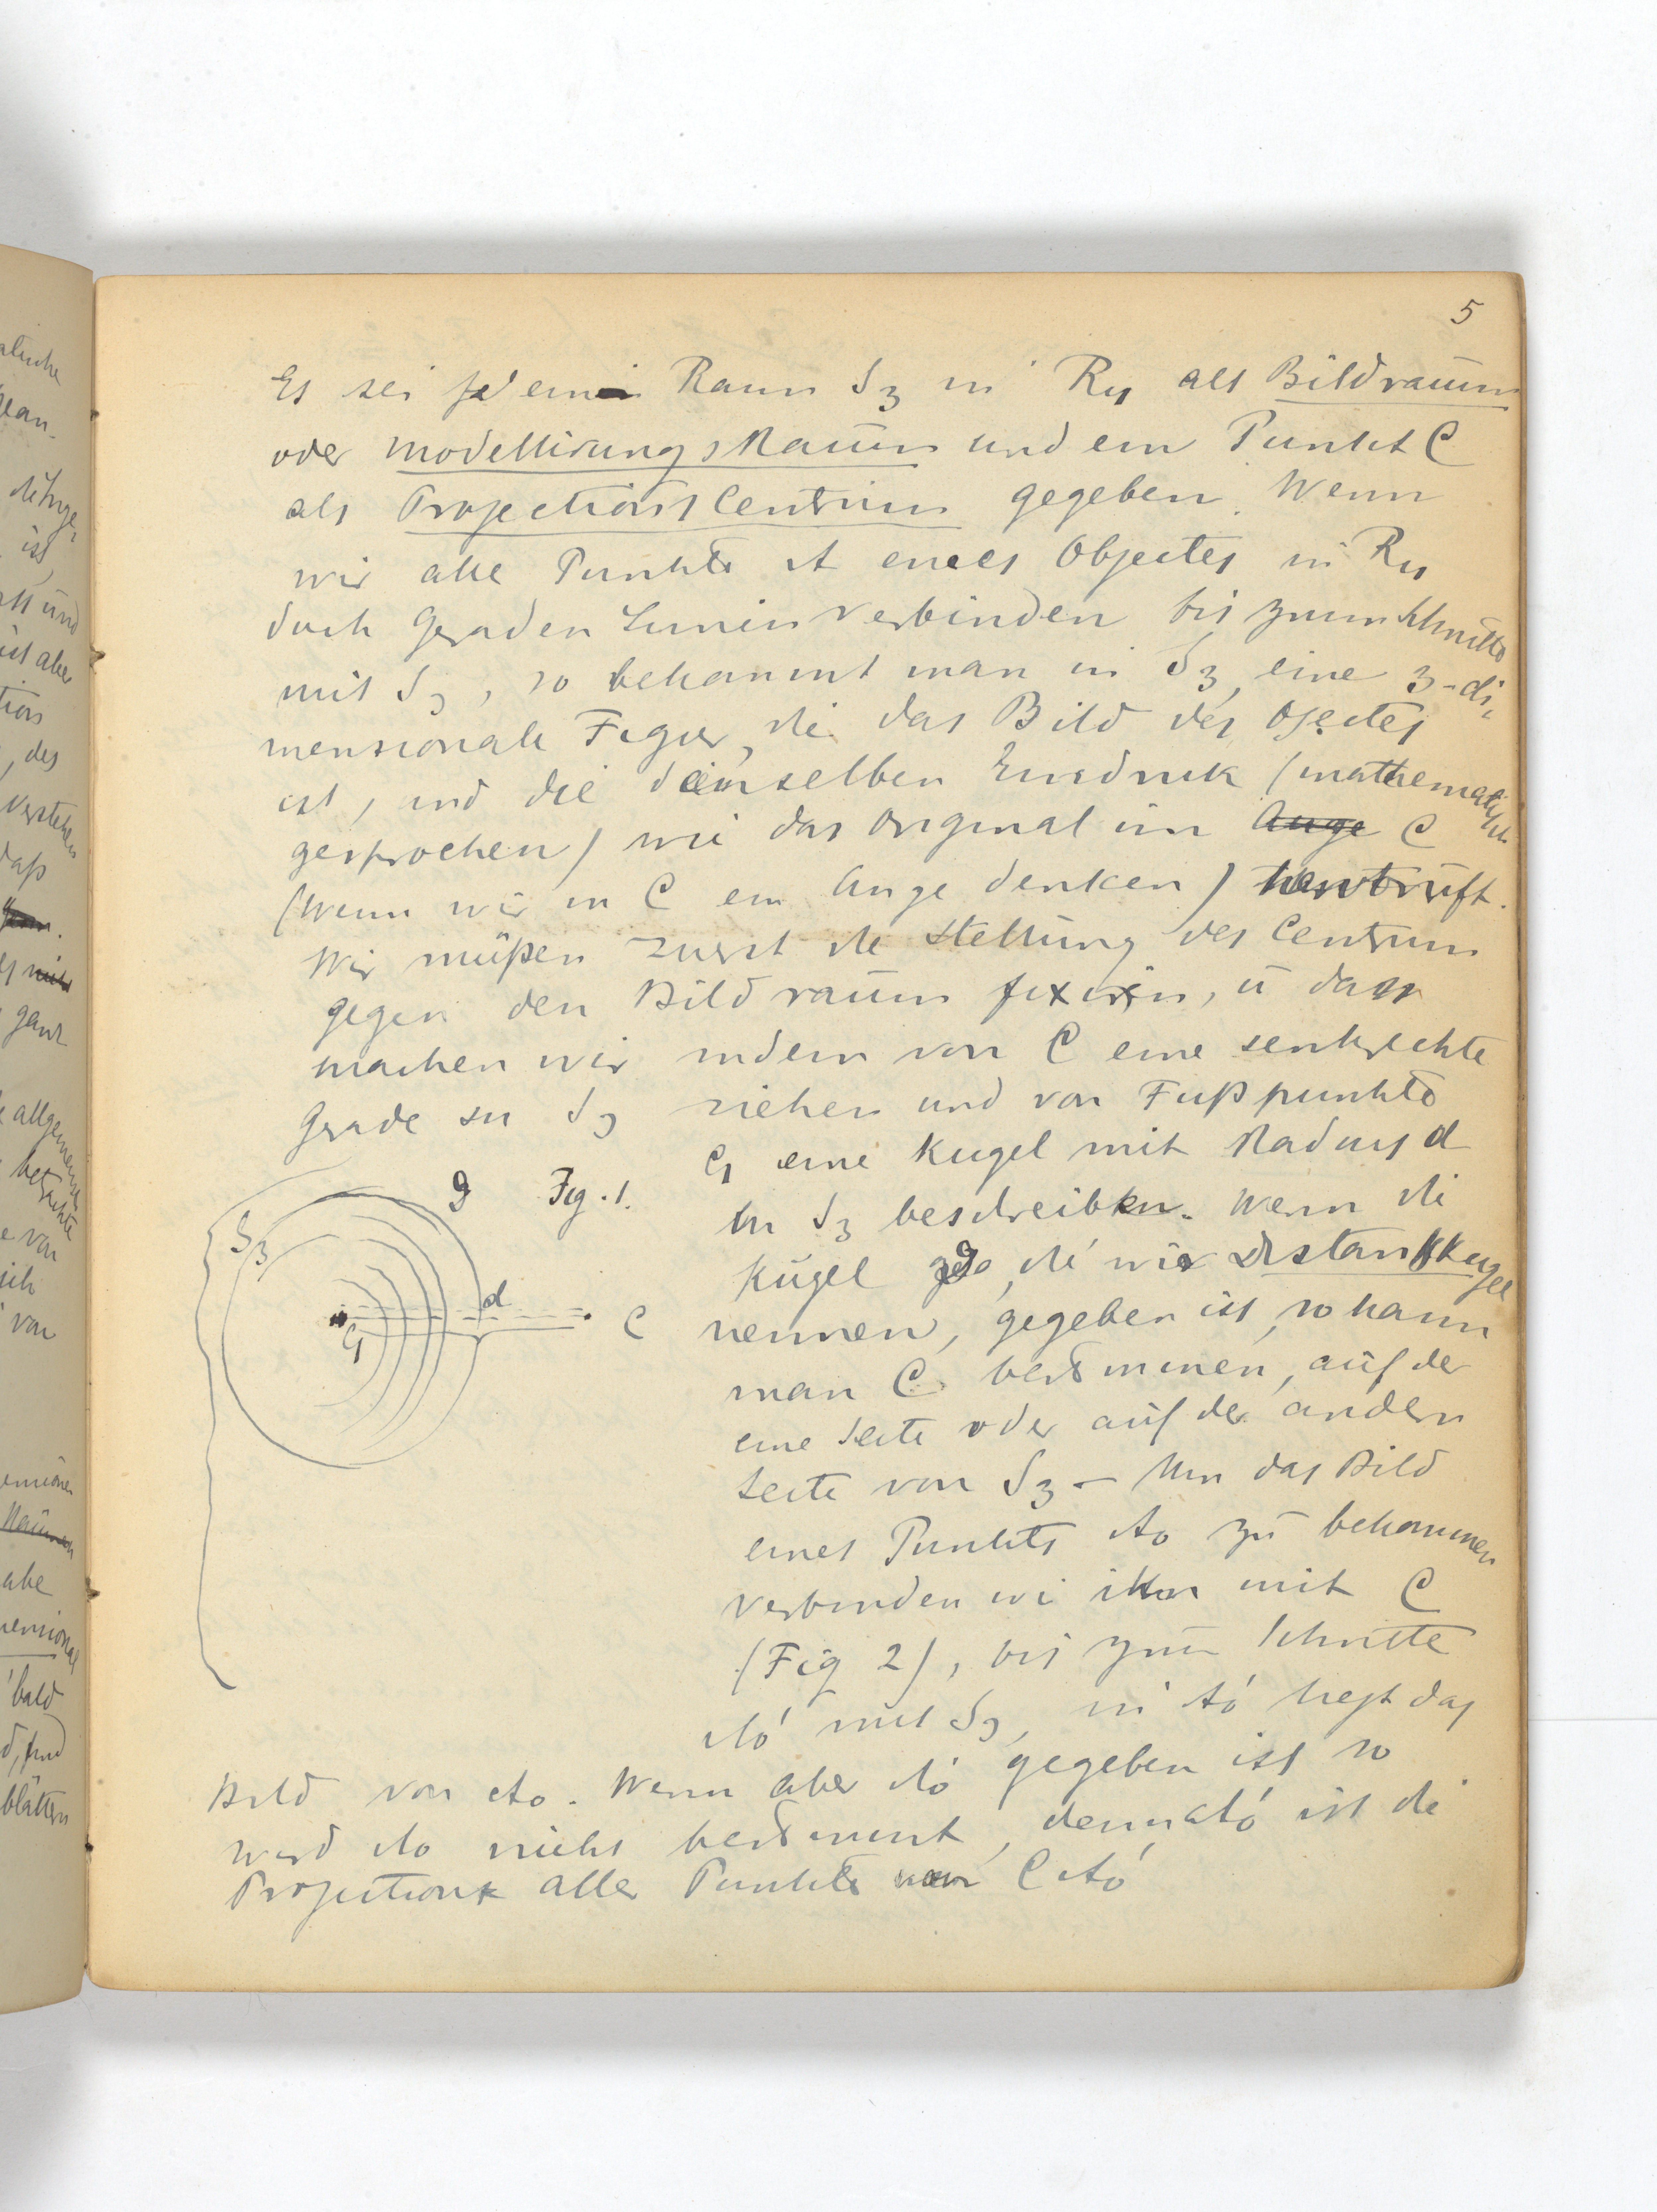 5
Es sei ein Raum S3 in R4 als Bildraum
oder Modellirungsraum und ein Punkt C
als Projections Centrum gegeben. Wenn
wir alle Punkte A eines Objectes in R4
duch geraden Linien verbinden bis zum Schnitte
mit S3, so bekommt man in S3 eine 3-di-
mensionale Figur, die das Bild des Ojectes
ist, und die denselben Eindruk (mathematisch
gesprochen) wie das Original im Auge C
(Wenn wir in C ein Auge denken) hervorruft.
Wir müßen zuerst die Stellung des Centrum
gegen den Bildraum fixiren, ü das
machen wir indem von C eine senkrechte
Grade zu S3 ziehen und von Fußpunkte
C1 eine Kugel mit Radius d
in S3 beschreiben. Wenn die
Kugel g, die wir Distanzkugel
nennen, gegeben ist, so kann
man C bestimmen, auf der
eine Seite oder auf der andern
Seite von S3 – Um das Bild
eines Punkts Ao zu bekommen
verbinden wi ihn mit C
(Fig 2), bis zum Schnitte
Ao' mit S3, in Ao' liegt das
Bild von Ao. Wenn aber Ao' gegeben ist so
wird Ao nicht bestimmt, denn Ao' ist die
Projection aller Punkte von C Ao'
g Fig. 1.
S3
d
C1
C
alische
ist
ist aber
tion
, des
Verstehen
daß
ganz
allgemeinen
betrachte
von
sich
von
abe
bald
blättern